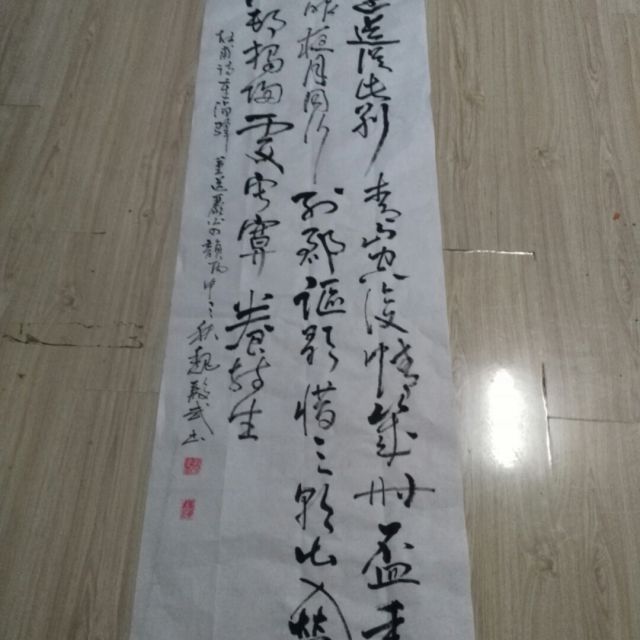 送從此別青山空復情幾時盃重
昨夜月同行列郡謳歌惜三朝出入榮
村獨歸處寂寞養殘生
杜甫詩奉濟驛重送嚴公四韻 甲午秋